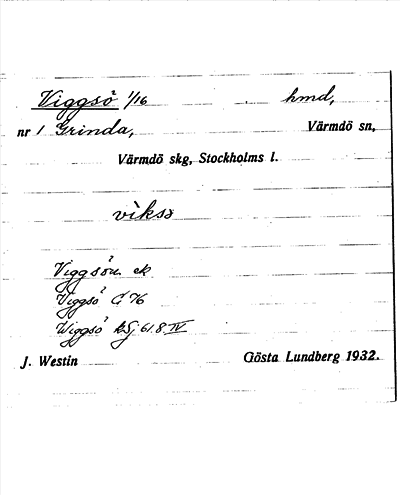 Viggsö 1/16 hmd,
nr 1 Grinda, Värmdö sn,
Värmdö skg, Stockholms l.
vìksɜ
Viggsön ek
Viggsö G 76
Wiggsö 61.8 IV
J. Westin Gösta Lundberg 1932.